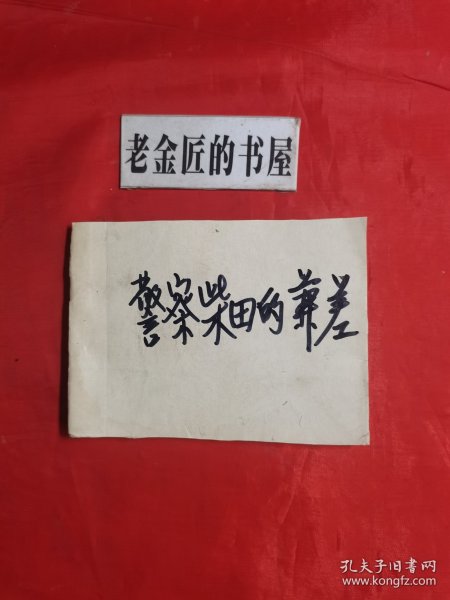 老金匠的书屋
警察柴田的兼差
孔夫子旧书网
www.kongfz.com